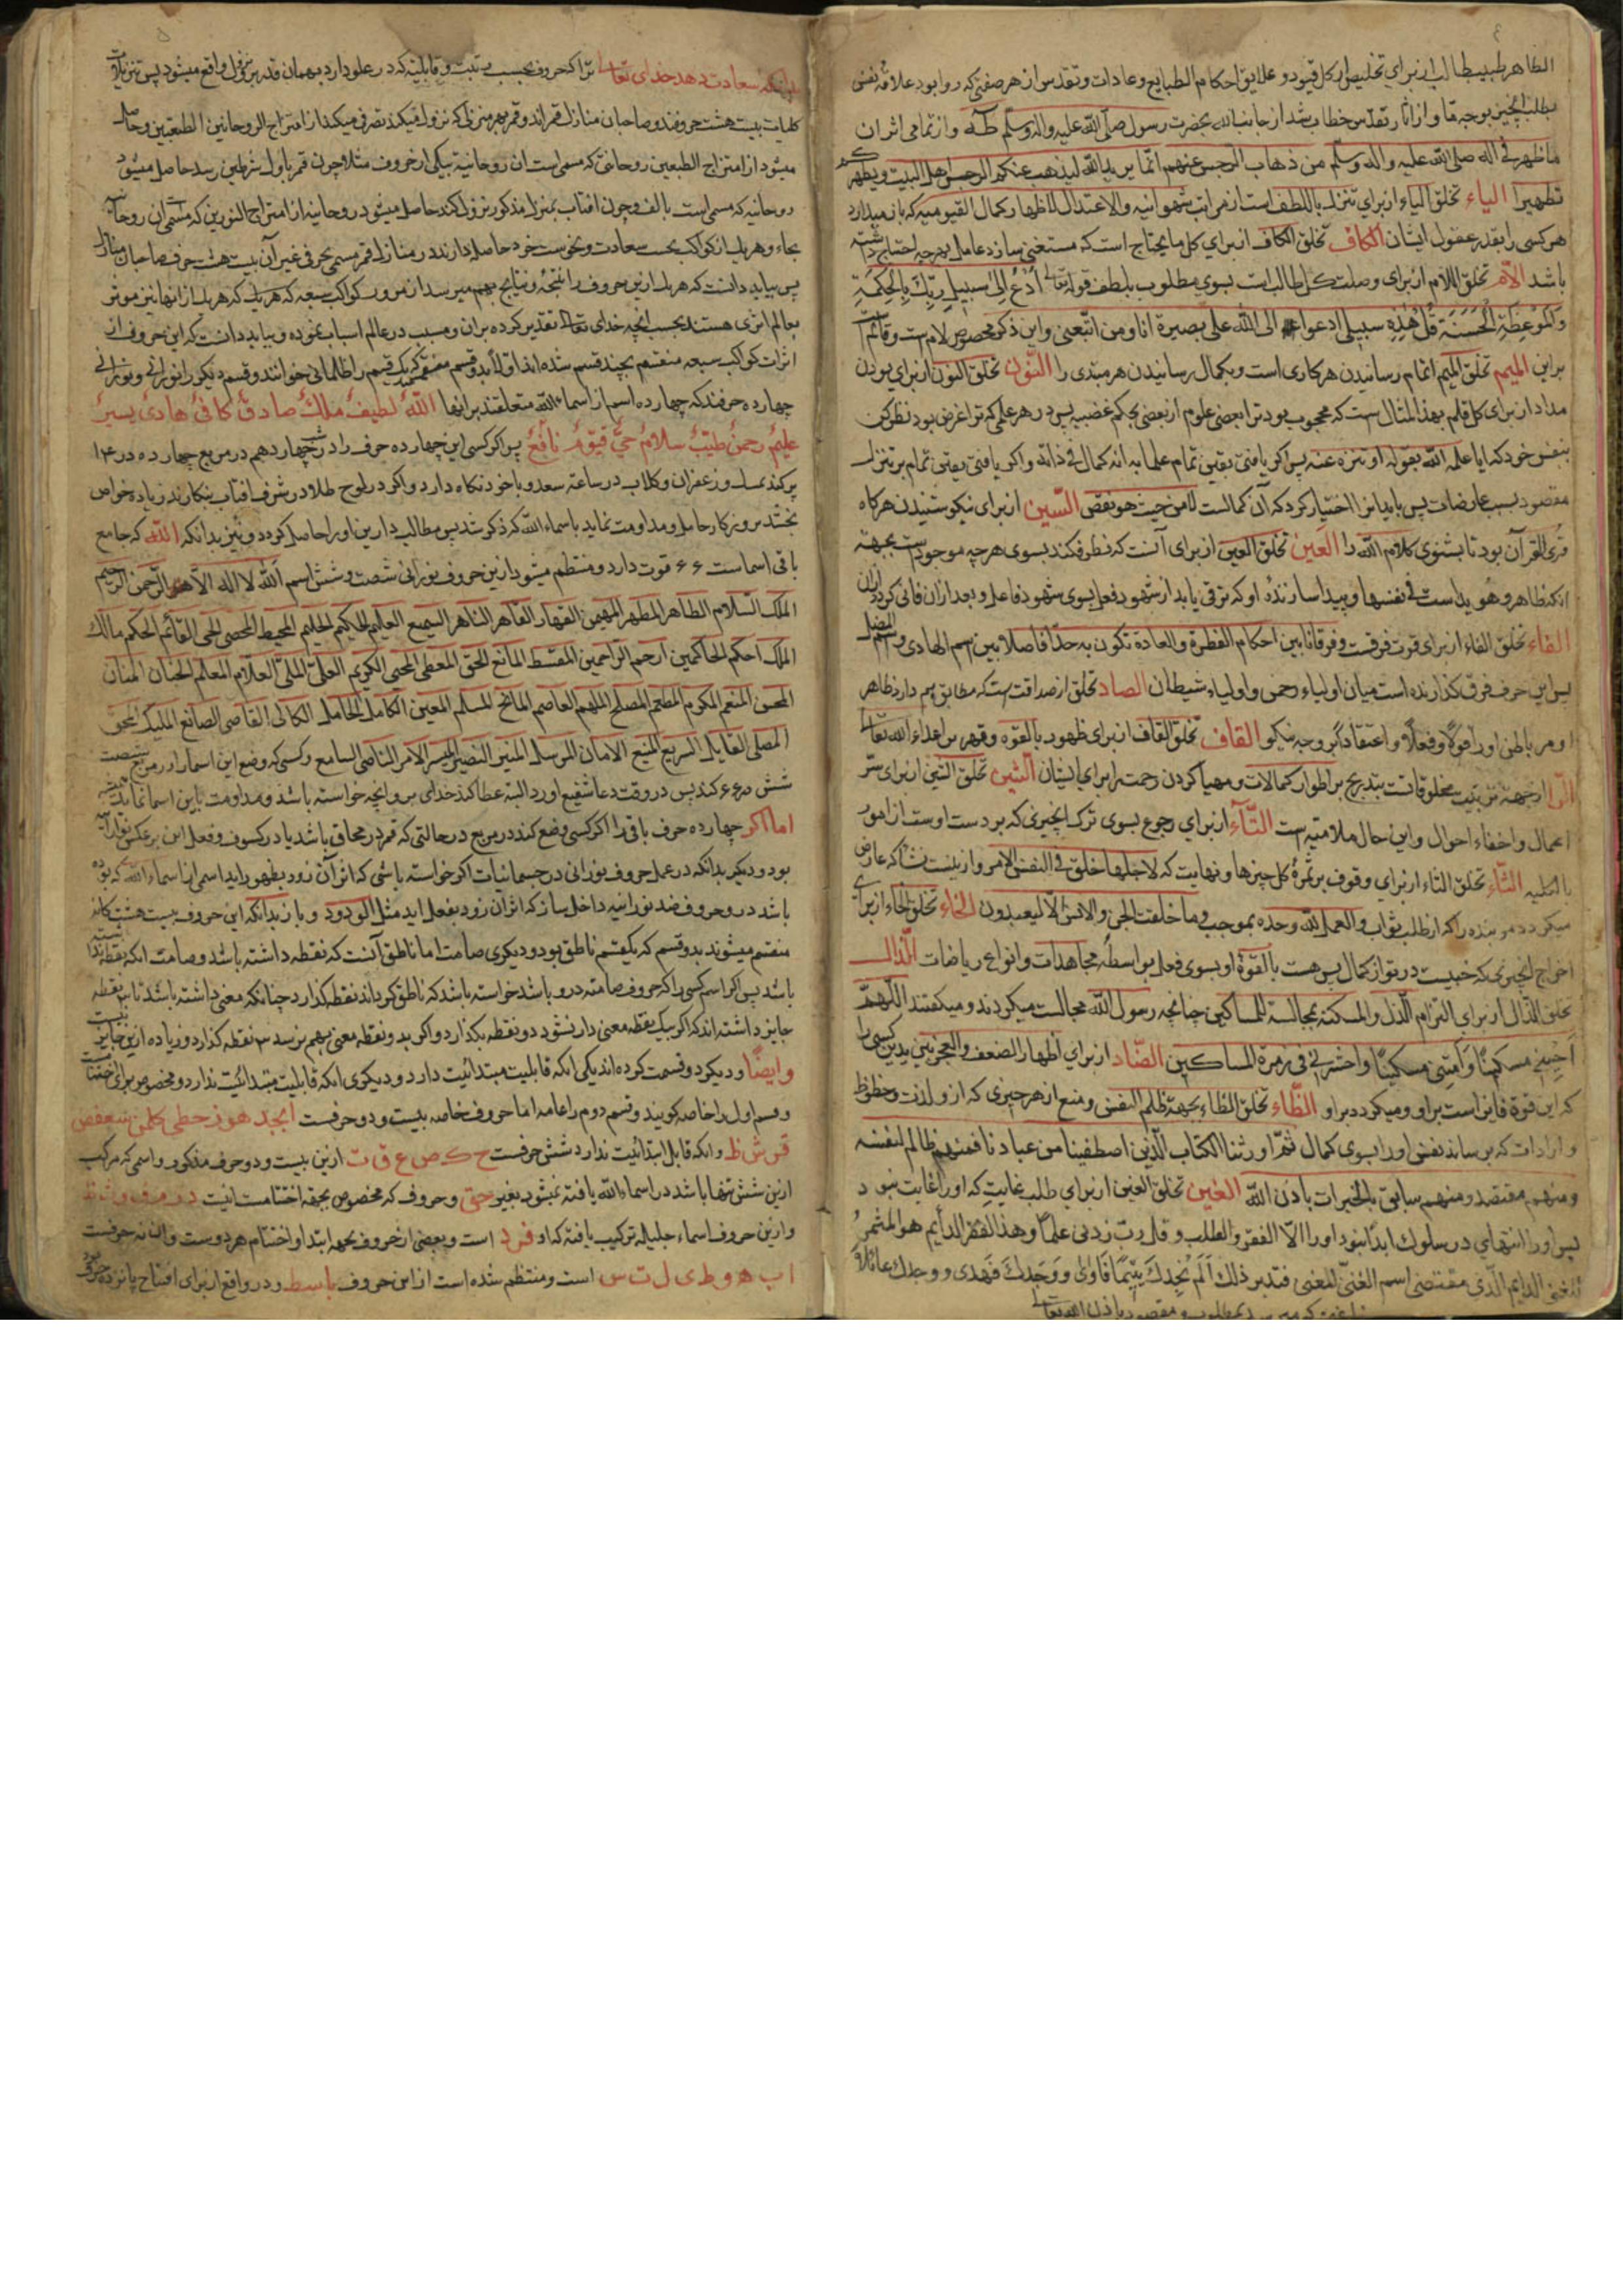 الطاهر طبیب طالب از برای تخلیص از کل قیود و علایق احکام الطبایع و عادات و تقدس از هر صفتی که روا بود علاقه نفس
بطلب انچیز بوجه ما و از اثار تقدس خطاب شد از جانب الله بحضرت رسول صلی الله علیه واله وسلم طه و از تمامی اثر ان
ما ظهر فی اله صلی الله علیه واله وسلم من ذهاب الرجس عنهم انما یرید الله لیذهب عنکم الرجس اهل البیت ویطهرکم
تطهیرا الیاء تخلق الیاء از برای تنزل باللطف است از مراتب شهوانیه والاعتدال لاظهار کمال القیومیه که باز میدارد
هر کسی را بقدر عقول ایشان الکاف تخلق الکاف از برای کل ما یحتاج است که مستغنی سازد عامل بهر چه احتیاج داشته
باشد اللام تخلق اللام از برای وصلت کل طالب است بسوی مطلوب بلطف قوله تعالی اُدْعُ اِلیٰ سَبیلِ رَبِّکَ بِالْحِکْمَةِ
وَالْمَوْعِظَةِ الْحَسَنَةِ قُلْ هٰذِهِ سبیلی ادعوا الی الله علی بصیرة انا ومن اتبعنی و این ذکر مخصوص لام است و قائم
براین المیم تخلق المیم اتمام رسانیدن هر کاری است و بکمال رسانیدن هر مبتدی را النّون تخلق النون از برای بودن
مداد از برای کل قلم بهذا المثال است که محجوب بود ترا بعضی علوم از بعضی بحکم غضبیه پس در هر علمی که ترا غرض بود نظر کن
بنفس خود که ایا علمه الله بقوله او تنزه عنه پس اکر یافتی یقین تمام علما بدانه کمال فی ذاته و اکر یافتی یقین تمام بر تنزل
مقصود بسبب عارضات پس باید انرا اختیار کرد که آن کمالست لا من حیث هو نقص السّین از برای نیکو شنیدن هر کاه
قرئ القرآن بود تا بشنوی کلام الله را العین تخلق العین از برای آنست که نظر فکند بسوی هر چه موجود است بجهة
انکه ظاهر و هویداست فی نفسها و پیدا سازنده او که ترقی یابد از شهود فعل بسوی شهود فاعل و بعد از ان فانی کردد از ان
الفاء تخلق الفاء از برای قوت فرقت و فرقانا بین احکام الفطرة والعادة تکون به حدا فاصلا بین اسم الهادی و اسم المضل
پس این حرف فرق کذارنده است میان اولیاء رحمن و اولیاء شیطان الصاد تخلق از صداقت است که مطابق هم دارد ظاهر
او مر باطن او را قولاً وفعلاً و اعتقاداً بر وجه نیکو القاف تخلق القاف از برای ظهور بالقوه و قهر بر اعداء الله تعالی
الرّا از جهة تربیت مخلوقاتست بتدریج بر اطوار کمالات و مهیا کردن رحمت را برای ایشان الشین تخلق الشین از برای ستر
اعمال و اخفاء احوال و این حال ملامتیه است التّآء از برای رجوع بسوی ترک انچیزی که بر دست اوست از امور
بالکلیه الثّاء تخلق الثاء از برای وقوف بر ثمرهٔ کل چیزها و نهایت که لاجلها خلق فی النفس الامر و از
میکردد مر بنده را که از طلب ثواب و العمل لله وحده بموجب وما خلقت الجن والانس الا لیعبدون الخاء تخلق الخاء از برای
اخراج انچیزی که خبیست در تو از کمال پس هست بالقوهٔ او بسوی فعل بواسطهٔ مجاهدات و انواع ریاضات الذّال
تخلق الذال از برای التزام الذل والمسکنة بمجالسة للمساکین چنانچه رسول الله مجالست میکردند و میکفتند اللّهمّ
اَحْیِنی مسکینًا وَاَمِتْنی مسکینًا واحشرنی فی زمرة المساکین الضّاد از برای اظهار الضعف والعجز
که این قوة فایز است براو و میکردد براو الظّاء تخلق الظاء بجهة ظلم النفس و منع از هر چیزی که از و لذت و حظوظ
و ارادات که برساند نفس او را بسوی کمال ثمّ اورثنا الکتاب الّذین اصطفینا من عبادنا فمنهم ظالم لنفسه
ومنهم مقتصد ومنهم سابق بالخیرات باذن اللّه الغین تخلق الغین از برای طلب غایت که او را غایت نبود
پس او را انتهای در سلوک ابدا نبود او را الا الفقر والطلب وقل رب زدنی علماً وهذا الفقر الدایم هو المثمر
للغنی الدایم الّذی مقتضی اسم الغنیّ المغنی فتدبر ذلک اَلَمْ یَجِدْکَ یَتِیْمًا فَاٰوٰی وَوَجَدَکَ فَهَدٰی ووجدک عائلاً
فاغنی که میرسد بمطلوب و مقصود باذن الله تعالی
بدانکه سعادت دهد خدای تعالی ترا که حروف بحسب رتبت و قابلیة که در علو دارد بهمان قدر بنزول واقع میشود پس تنزلات
کلمات بیست هشت حرفند و صاحبان منازل قمراند و قمر بهر منزلی که نزول میکند تصرفی میکند از امتزاج الروحانین الطبعین و حاصل
میشود از امتزاج الطبعین روحانی که مسمی است ان روحانیة بیکی از حروف مثلا چون قمر باول شرطین رسد حاصل میشود
روحانیه که مسمی است بالف و چون افتاب بمنزل مذکور نزول کند حاصل میشود روحانیه از امتزاج النورین که مسمی ان روحانیه
بجاء و هر یک از کواکب بحسب سعادت و نحوست خود حاصل دارند در منازل قمر مسمی بحرفی غیر آن بیست هشت حرف صاحبان منازل
پس بباید دانست که هر یک ازین حروف را نتیجهٔ و نتایج بهم میرسد از مرور کواکب سبعه که هر یک که هر یک از انها نیز موثر
بعالم اثری هستند بحسب انچه خدای تعالی تقدیر کرده بران و مسبب در عالم اسباب نموده و بباید دانست که این حروف از
اثرات کواکب سبعه منقسم بچند قسم شده اند اولا بدو قسم منقسم یک قسم را ظلمانی خوانند و قسم دیکر را نورانی و نورانی
چهارده حرفند که چهارده اسم از اسماء الله متعلقند برانها اللّهُ لطیفٌ مَلِکٌ صادقٌ کافیٌ هادیٌ یسیرٌ
علیمٌ رحمنٌ طیّبٌ سلامٌ حیٌّ قیّومٌ نافعٌ پس اکر کسی این چهارده حرف را در شب چهاردهم در مربع چهارده در ۱۴
پر کند بمسک و زعفران و کلاب در ساعة سعد و با خود نکاه دارد و اکر در لوح طلا در شرف افتاب بنکارند زیاده خواص
بخشد بر و زکار حامل و مداومت نماید باسماء اللّه که ذکر شد پس مطالب دارین او را حاصل کردد و نیز بدانکه اللّه که جامع
باقی اسماست ۶۶ قوت دارد و منتظم میشود ازین حروف نورانی شصت و شش اسم اللّه لا اله الا هو الرّحمن الرّحیم
الملک السّلام الطاهر المطهر المهیمن القهار القاهر الناهر السمیع العلیم الحکیم الحلیم المحیط المحصی الحی القائم الحکم مالک
الملک احکم الحاکمین ارحم الراحمین المقسط المانع الحق المعطی المحیی الکریم العلی الملی العلام المعلم الحنان المنان
المحسن المنعم المکرم المطعم المصلح الملهم العاصم المانح المسلم المعین الکامل الحامل الکالی القاضی الصانع الملیک المحق
شش در ۶۶ کند پس در وقت دعا شفیع اورد البته عطا کند خدای بر و انچه خواسته باشد و مداومت باین اسما نماید
اما اکر چهارده حرف باقی را اکر کسی وضع کند در مربع در حالتی که قمر در محاق باشد یا در کسوف و فعل این بر عکس نورانیه
بود و دیکر بدانکه در عمل حروف نورانی در جسمانیات اکر خواسته باشی که اثر آن زود بظهور راید اسمی از اسماء اللّه که بوده
باشد در و حروف ضد نورانیه داخل ساز که اثر ان زود بفعل اید مثل الودود و باز بدانکه این حروف بیست هشت کانه
منقسم میشوند بدو قسم که یکقسم ناطق بود و دیکری صامت اما ناطق آنست که نقطه داشته باشد و صامت انکه نقطه نداشته
باشد پس اکر اسم کسی را که حروف صامته درو باشد خواسته باشد که ناطق کرداند نقطه کذارد چنانکه معنی داشته باشد تا ۳ نقطه
جایز داشته اند که اکر بیک نقطه معنی دار نشود دو نقطه بکذارد و اکر بدو نقطه معنی بهم نرسد ۳ نقطه کذارد و زیاده ازین جایز نیست
وایضًا و دیکر دو قسمت کرده اند یکی انکه قابلیت مبتدائیت دارد و دیکری انکه قابلیت مبتدائیت ندارد و مخصوص برای اختتامست
و قسم اول را خاصه کویند و قسم دوم را عامه اما حروف خاصه بیست و دو حرفست ابجد هوز حطی کلمن سعفص
قرش ظ و انکه قابل ابتدائیت ندارد شش حرفست ح ک ص ع ق ت ازین بیست و دو حرف مذکور و اسمی که مرکب
ازین شش تنها باشد در اسماء اللّه یافته نمیشود بغیر حق و حروف که مخصوص بجهة اختتامست اینست
و ازین حروف اسماء جلیله ترکیب یافته که او فرد است و بعضی از حروف بجهة ابتدا و اختتام هر دوست و ان نه حرفست
ا ب ه و ط ی ل ت س است و منتظم شده است از این حروف باسط و در واقع از برای افتتاح پانزده حرف بود